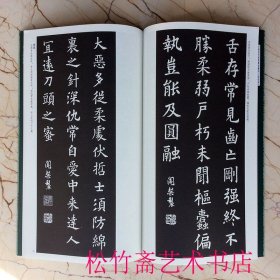 舌存常見齒亡剛强終不
勝柔弱戶朽未聞樞蠹偏
執豈能及圓融
閻錫鰲
大惡多從柔處伏哲士須防綿
裏之針深仇常自愛中來達人
宜遠刀頭之蜜
松竹斋艺术书店